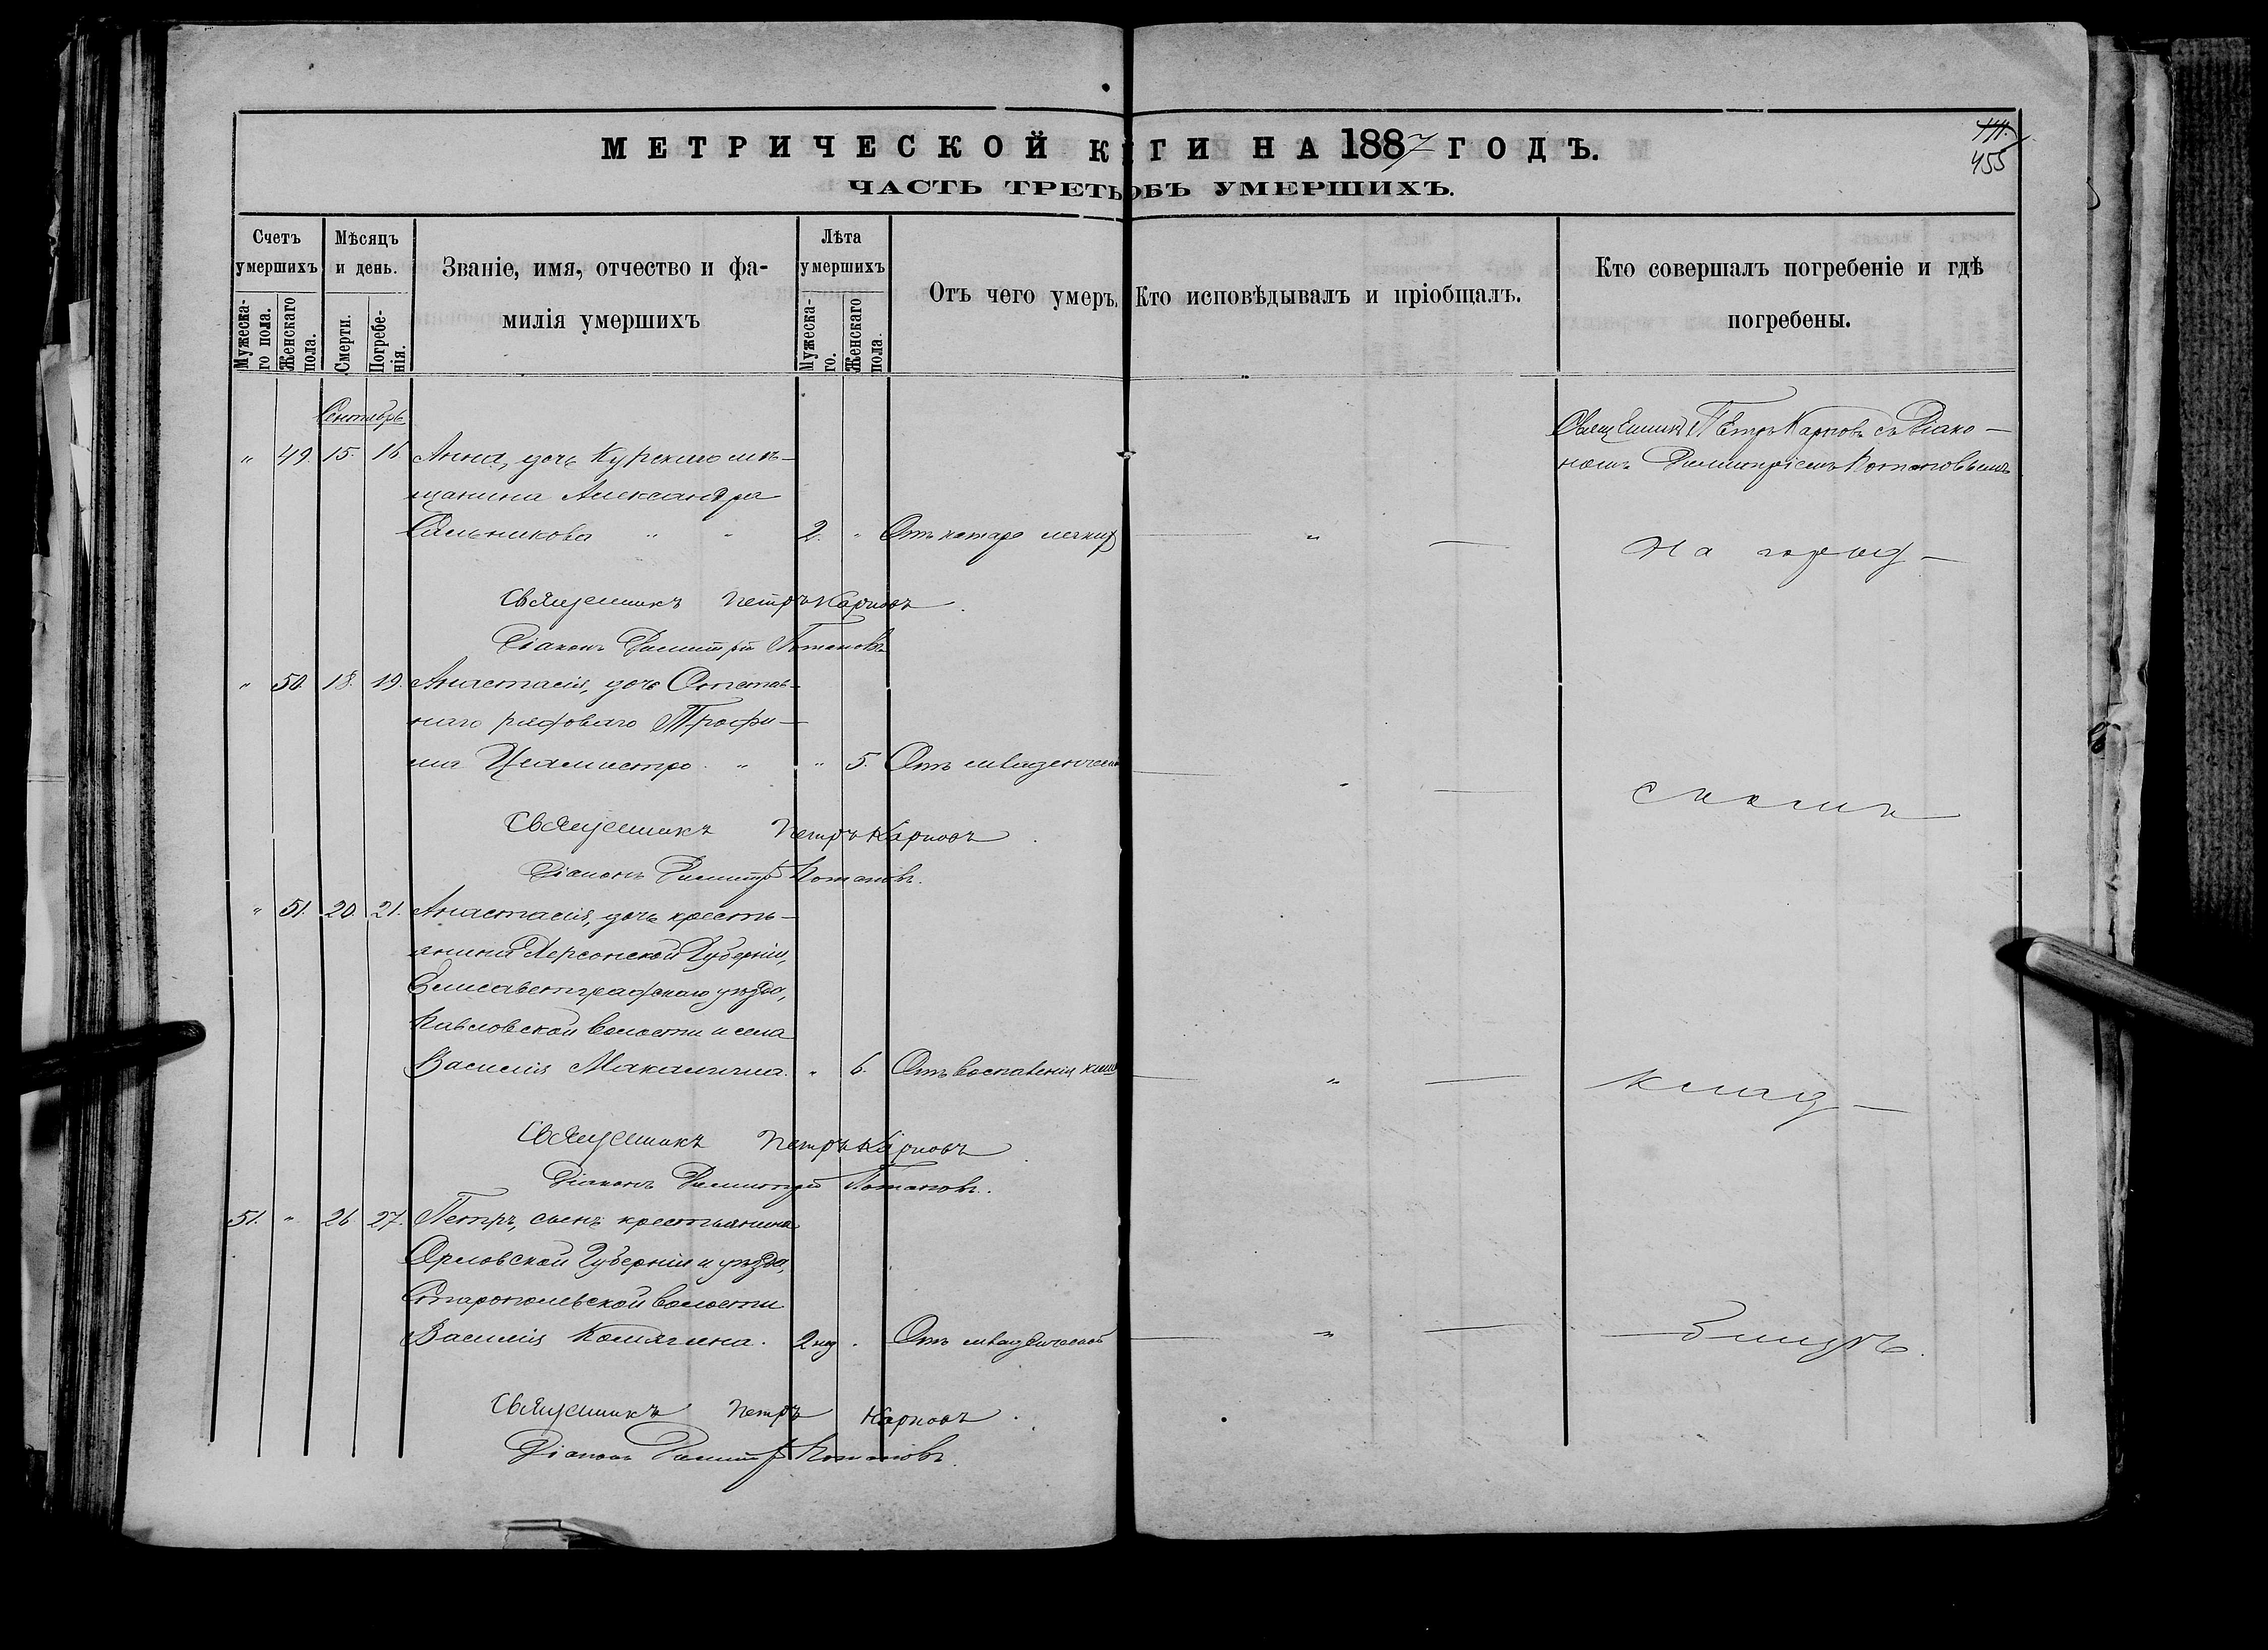 МЕТРИЧЕСКОЙ К ГИ НА 1887 ГОДЪ.
ЧАСТЬ ТРЕТЬ ОБЪ УМЕРШИХЪ.
455
Счетъ умершихъ
Мужеска-го пола.
Женскаго пола.
Мѣсяцъ и день.
Смерти.
Погребе-нія.
Званіе, имя, отчество и фа-
милія умершихъ
Лѣта умершихъ
Мужеска-го.
Женскаго пола.
Отъ чего умеръ.
Кто исповѣдывалъ и пріобщалъ.
Кто совершалъ погребеніе и гдѣ
погребены.
Сентябрь
" 49 15. 16 Анна, дочь Курскаго мѣ-
щанина Александра
Сальникова " " 2. " Отъ катара легких
Священникъ Петръ Карповъ с Діако-
номъ Димитріемъ Потаповымъ
на город-
Священникъ Петръ Карповъ.
Діаконъ Димитрій Потаповъ
" 50. 18. 19. Анастасія, дочь Отстав-
наго рядоваго Трофи-
ма " " 5. Отъ младенческ
скомъ
Священникъ Петръ Карповъ.
Діаконъ Димитр Потаповъ.
" 51. 20. 21. Анастасія, дочь кресть-
янина Херсонской Губерніи,
Елисаветградскаго уѣзда,
Павловской волости и села
Василія Макалича. " 6. Отъ воспаленія киш
"
клад-
Священникъ Петръ Карповъ
Діаконъ Димитрій Потаповъ.
51. " 26 27. Петръ, сынъ крестьянина
Орловской Губерніи и уѣзда,
Старопольской волости
Василія Комягина. 2 нд . Отъ младенческой
"
бищѣ.
Священникъ Петръ Карповъ.
Діаконъ Димитр Потаповъ.